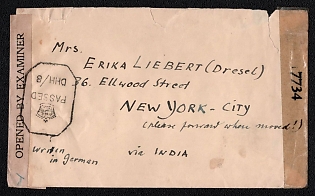 Mrs.
ERIKA LIEBERT (Dresel)
36. Ellwood Street
NEW YORK - CITY
(please forward when moved!)
via INDIA
written
in German
OPENED BY EXAMINER
PASSED
DHH/8
7734